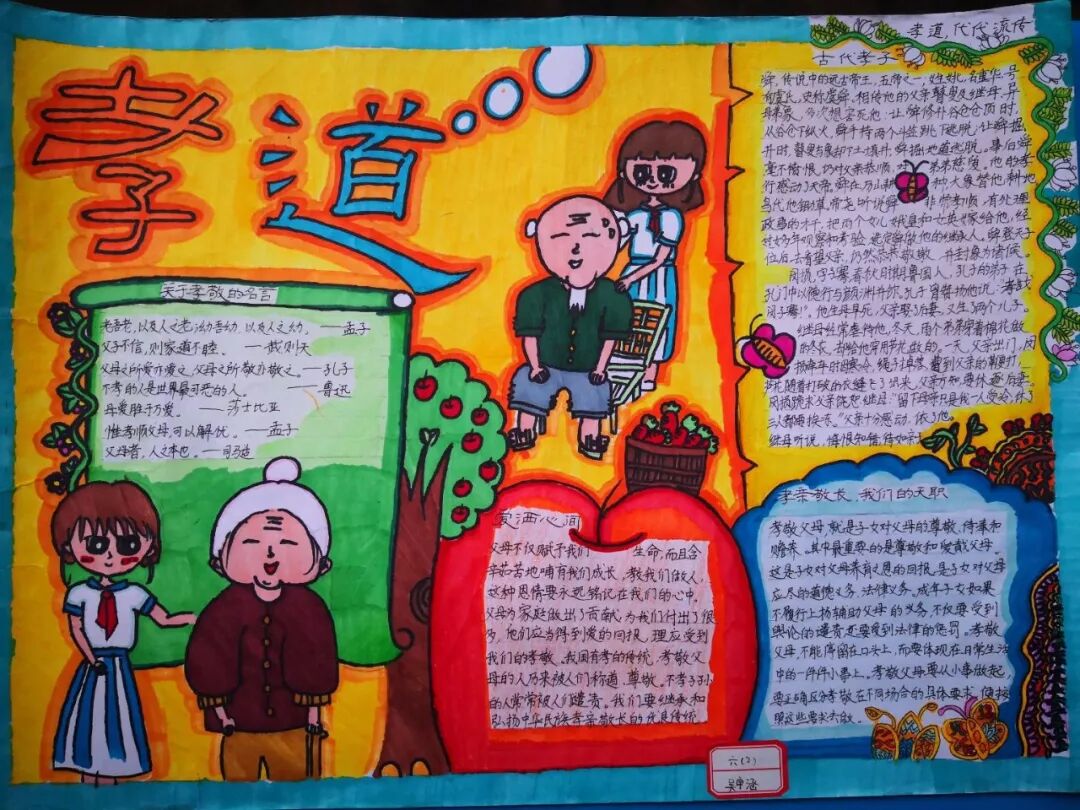 孝道
孝道,代代流传
古代孝子
舜,传说中的远古帝王,五帝之一,姓姚,名重华,号
有虞氏,史称虞舜。相传他的父亲瞽叟及继母、异
母弟象,多次想害死他:让舜修补谷仓仓顶时,
从谷仓下纵火,舜手持两个斗笠跳下逃脱;让舜掘
井时,瞽叟与象却下土填井,舜掘地道逃脱。事后舜
毫不嫉恨,仍对父亲恭顺,对弟弟慈爱。他的孝
行感动了天帝。舜在历山耕种,大象替他耕地
鸟代他锄草。帝尧听说舜非常孝顺,有处理
政事的才干,把两个女儿娥皇和女英嫁给他;经
过多年观察和考验,选定舜做他的继承人。舜登天子
位后,去看望父亲,仍然恭恭敬敬,并封象为诸侯。
闵损,字子骞,春秋时期鲁国人,孔子的弟子,在
孔门中以德行与颜渊并称。孔子曾赞扬他说:“孝哉
闵子骞!”。他生母早死,父亲娶了后妻,又生了两个儿子。
继母经常虐待他,冬天,两个弟弟穿着棉花做
的冬衣,却给他穿用芦花做的。一天,父亲出门,闵
损牵车时因寒冷,绳子掉落,遭到父亲的鞭打,
芦花随着打破的衣缝飞了出来,父亲方知,要休逐后妻。
闵损跪求父亲饶恕继母:“留下母亲只是我一人受冷,休了
三人都要挨冻。”父亲十分感动,依了他。
继母听说,悔恨知错,待如亲
关于孝敬的名言
老吾老,以及人之老;幼吾幼,以及人之幼。——孟子
父子不信,则家道不睦。——武则天
父母之所爱亦爱之,父母之所敬亦敬之。——孔子
不孝的人是世界最可恶的人。——鲁迅
母爱胜于万爱。——莎士比亚
惟孝顺父母,可以解忧。——孟子
父母者,人之本也。——司马迁
爱洒心间
父母不仅赋予我们生命,而且含
辛茹苦地哺育我们成长,教我们做人,
这种恩情要永远铭记在我们的心中。
父母为家庭做出了贡献,为我们付出了很
多,他们应当得到爱的回报,理应受到
我们的孝敬。我国有孝的传统,孝敬父
母的人历来被人们称道、尊敬。不孝子小
的人常常被人们谴责。我们要继承和
弘扬中华民族孝亲敬长的优良传统
孝亲敬长,我们的天职
孝敬父母就是子女对父母的尊敬、侍奉和
赡养。其中最重要的是尊敬和爱戴父母。
这是子女对父母养育之恩的回报,是子女对父母
应尽的道德义务、法律义务。成年子女如果
不履行上扬辅助父母的义务,不仅要受到
舆论的谴责还要受到法律的惩罚。孝敬
父母,不能停留在口头上,而要体现在日常生活
中的一件件小事上。孝敬父母要从小事做起,
要正确区分孝敬在不同场合的具体要求,做按
照这些要求去做。
六(2)
吴申涵